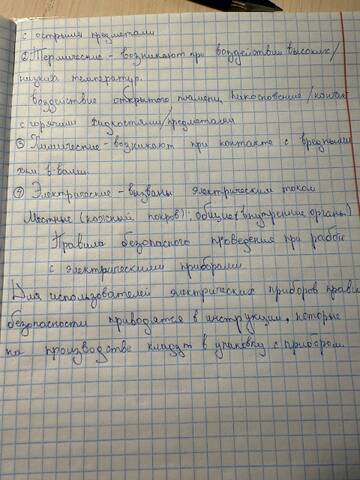 с острыми предметами
② Термические - возникают при воздействии высоких/
низких температур.
воздействие открытого пламени, прикосновение/контакт
с горячими жидкостями/предметами
③ Химические - возникают при контакте с вредными
хим. в-вами.
④ Электрические - вызваны электрическим током
Местные (кожный покров); общие (внутренние органы)
Правила безопасного проведения при работе
с электрическими приборами.
Для использователей электрических приборов прави
безопасности приводятся в инструкции, которые
на производстве кладут в упаковку с прибором.